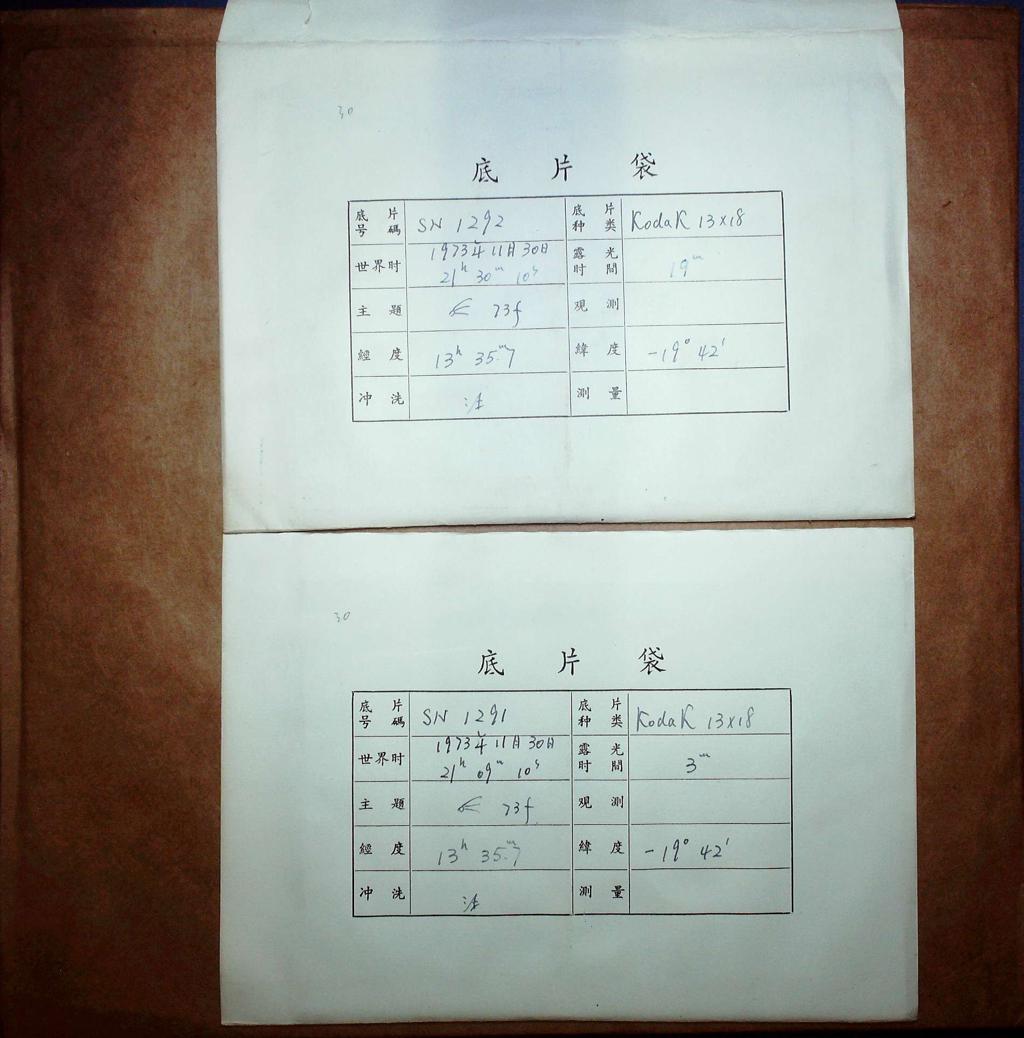 30
底 片 袋
底片号碼 SN 1292 底片种类 Kodak 13x18
世界时 1973年11月30日 21h 30m 10s 露光时間 19m
主題 73f 观測
經度 13h 35m.7 緯度 -19° 42'
冲洗 測量
30
底 片 袋
底片号碼 SN 1291 底片种类 Kodak 13x18
世界时 1973年11月30日 21h 09m 10s 露光时間 3m
主題 73f 观測
經度 13h 35m.7 緯度 -19° 42'
冲洗 測量